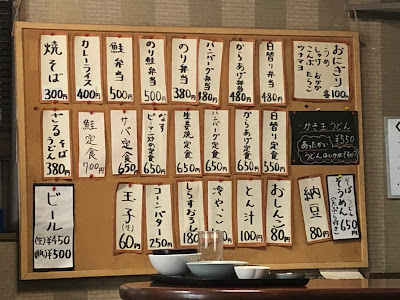 おにぎり
うめ
しゃけ おかか
こんぶ たらこ
ツナマヨ
各100円
日替り弁当
480円
からあげ弁当
480円
ハンバーグ弁当
480円
のり弁当
380円
のり鮭弁当
500円
鮭弁当
500円
カレーライス
400円
焼そば
300円
かき玉うどん
¥350
あったかい
日替り定食
650円
からあげ定食
650円
ハンバーグ定食
650円
生姜焼定食
650円
なす
ピーマン
定食
650円
サバ定食
650円
鮭定食
700円
ざる
そば
うどん
380円
そば
そうめん
650円
納豆
80円
おしんこ
80円
とん汁
100円
冷やっこ
150円
しらすおろし
180円
コーンバター
250円
玉子(生)
60円
ビール
(生)¥450
(瓶)¥500